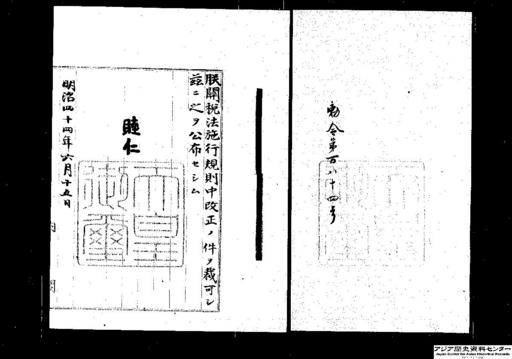 勅令第百八十四号
朕關税法施行規則中改正ノ件ヲ裁可シ
茲ニ之ヲ公布セシム
睦仁
天皇御璽
明治四十四年六月十五日
アジア歴史資料センター
Japan Center for Asian Historical Records